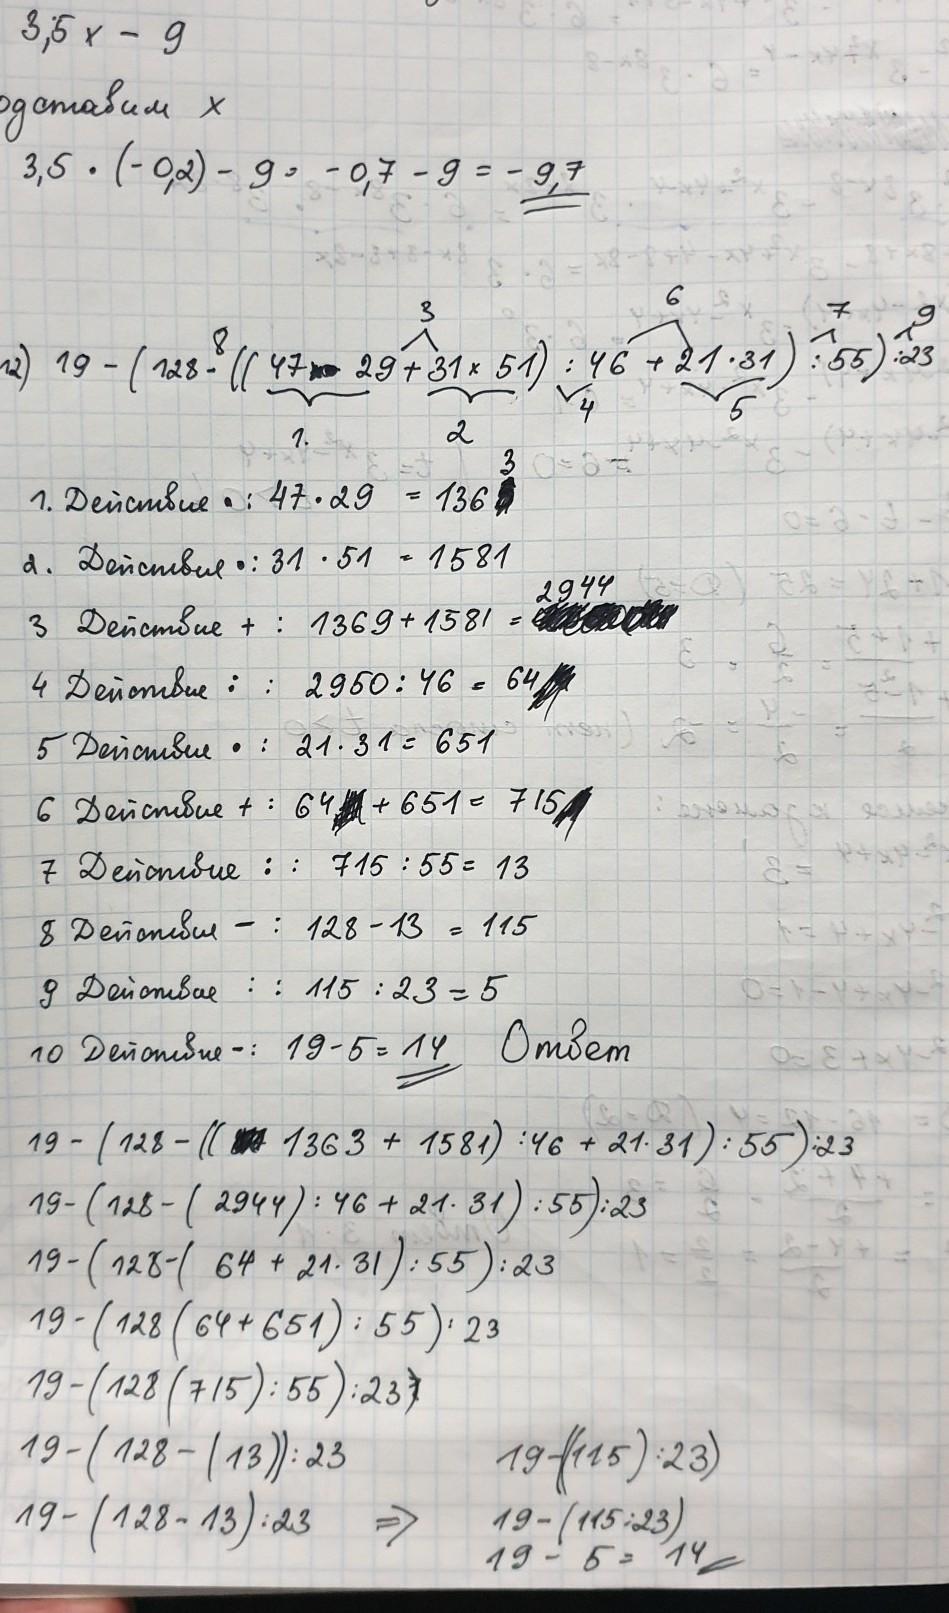 3,5x - 9
одставим x
3,5 · (-0,2) - 9 = -0,7 - 9 = -9,7
3 6 7 9
8
12) 19 - (128 - ((47 · 29 + 31 × 51) : 46 + 21 · 31) : 55) : 23
1. 2 4 5
3
1. Действие · : 47 · 29 = 136
2. Действие · : 31 · 51 = 1581
2944
3 Действие + : 1369 + 1581 =
4 Действие : : 2950 : 46 = 64
5 Действие · : 21 · 31 = 651
6 Действие + : 64 + 651 = 715
7 Действие : : 715 : 55 = 13
8 Действие - : 128 - 13 = 115
9 Действие : : 115 : 23 = 5
10 Действие - : 19 - 5 = 14 Ответ
19 - (128 - ((1363 + 1581) : 46 + 21 · 31) : 55) : 23
19 - (128 - (2944) : 46 + 21 · 31) : 55) : 23
19 - (128 - (64 + 21 · 31) : 55) : 23
19 - (128 (64 + 651) : 55) : 23
19 - (128 (715) : 55) : 23
19 - (128 - (13)) : 23 19 - ((115) : 23)
19 - (128 - 13) : 23 => 19 - (115 : 23)
19 - 5 = 14